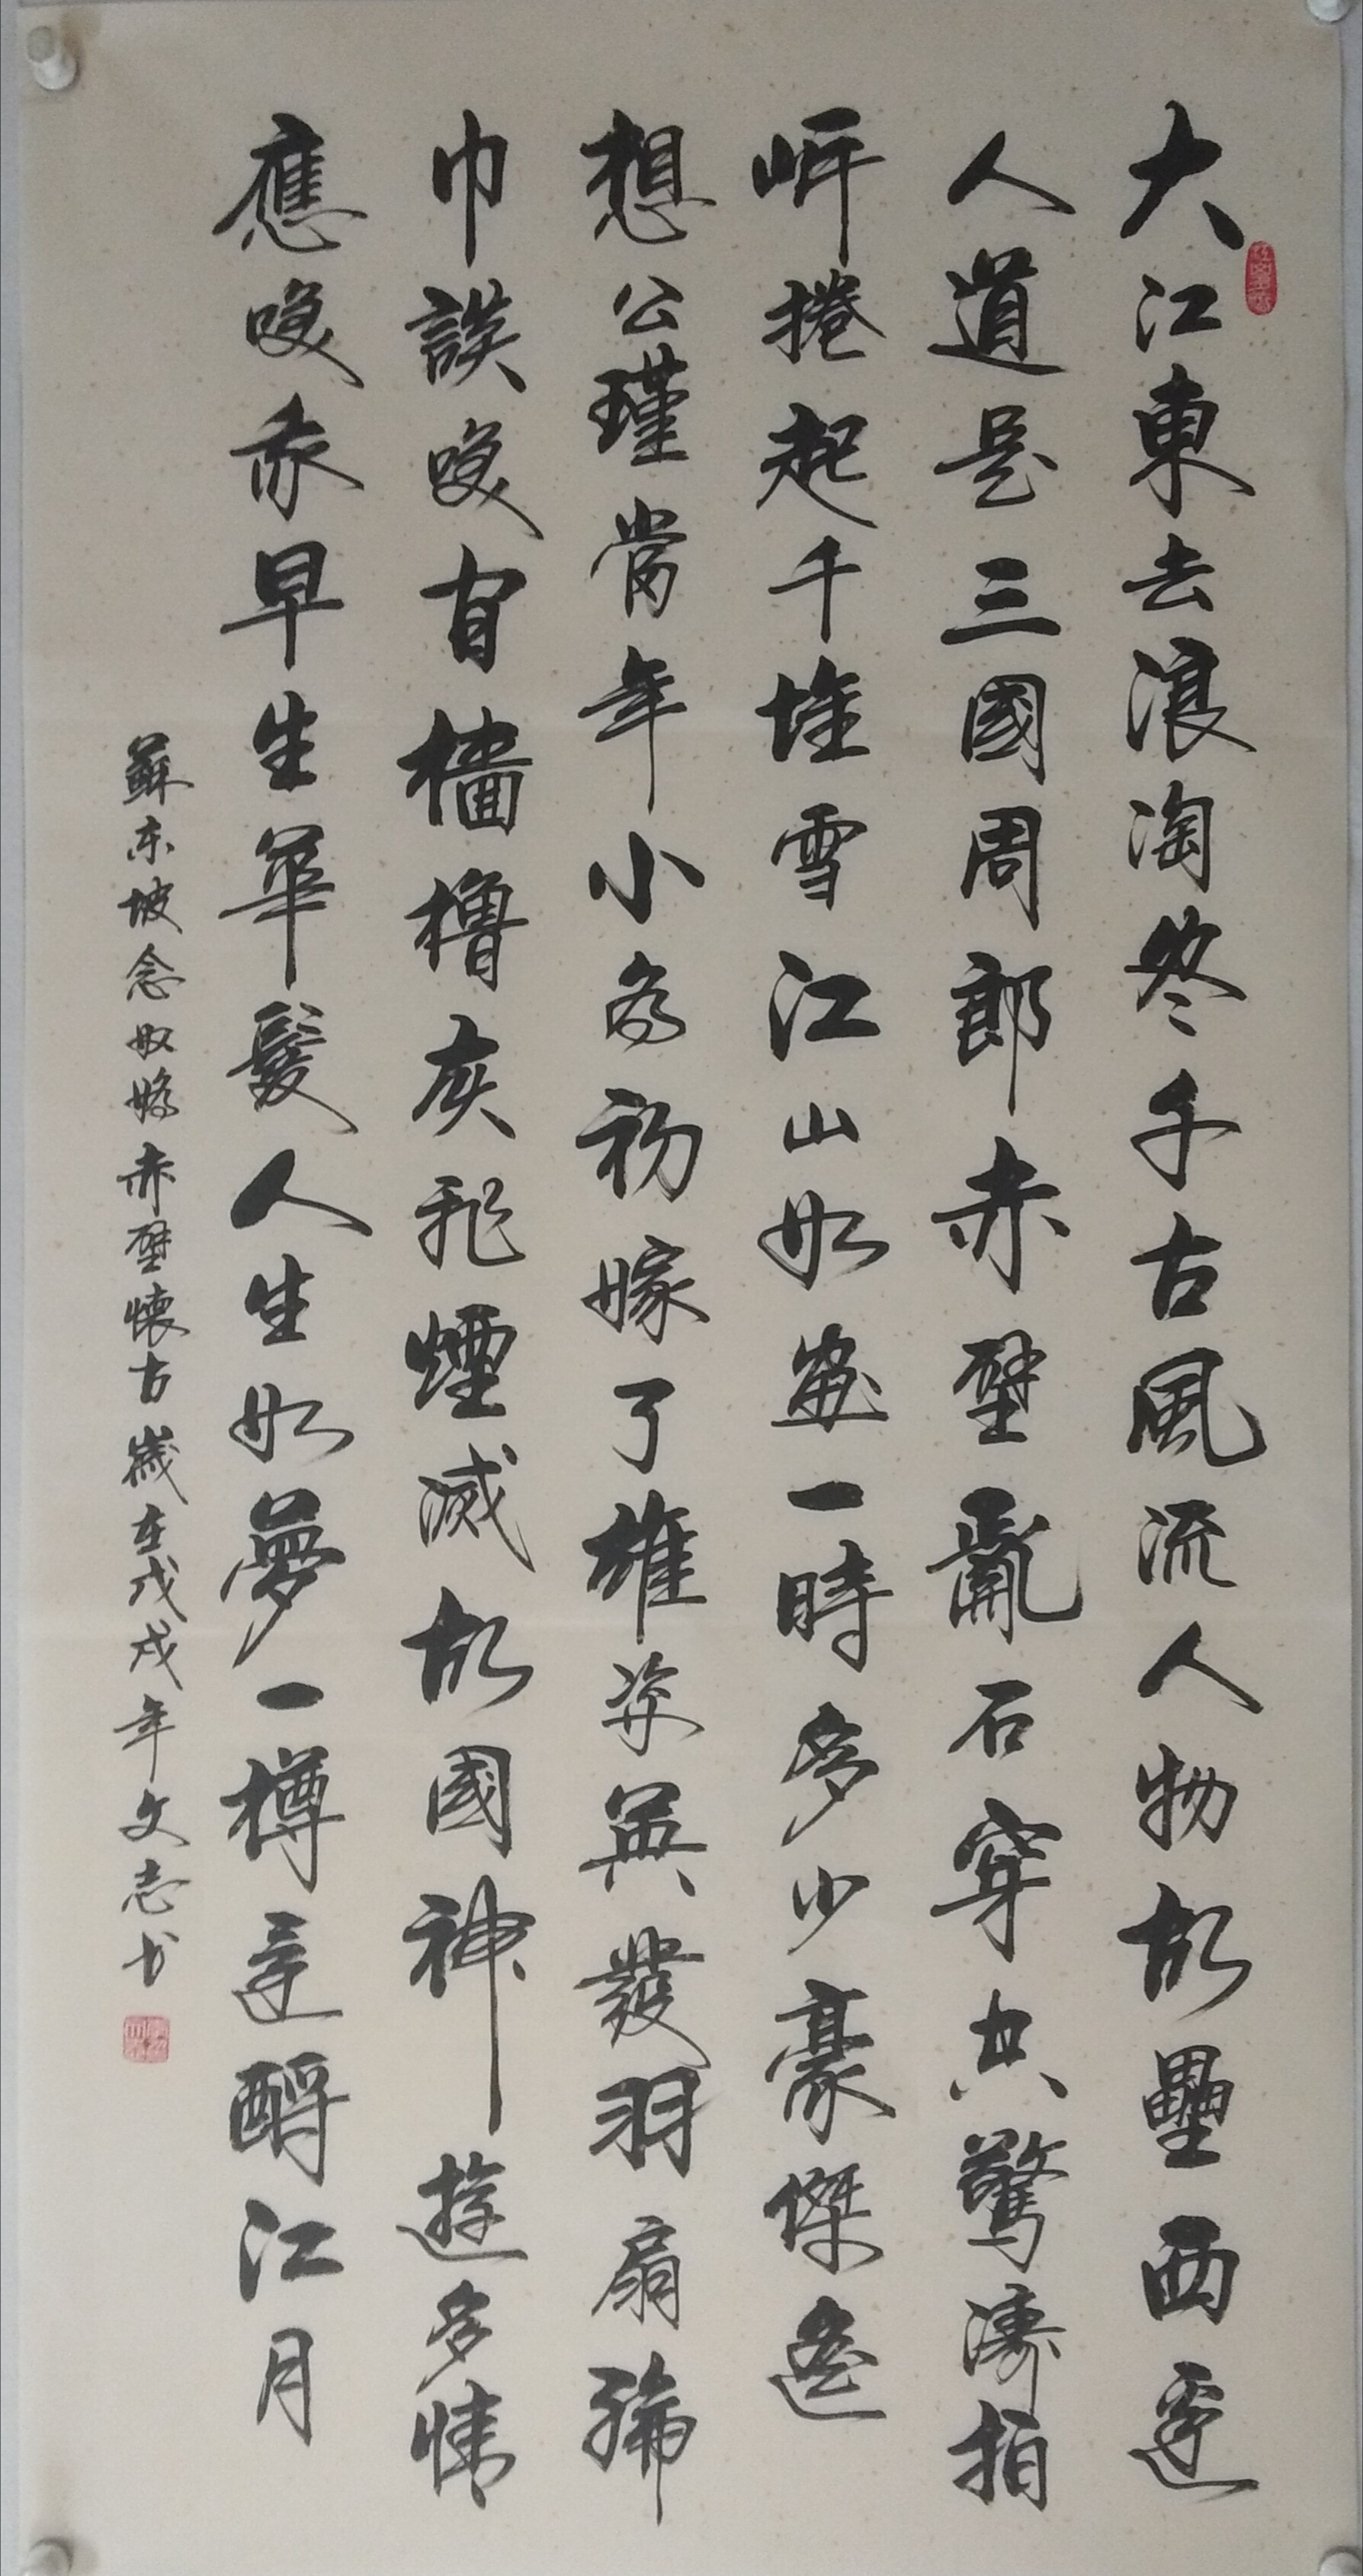 大江東去浪淘盡千古風流人物故壘西邊
人道是三國周郎赤壁亂石穿空驚濤拍
岸捲起千堆雪江山如畫一時多少豪傑遙
想公瑾當年小喬初嫁了雄姿英發羽扇綸
巾談笑間檣櫓灰飛煙滅故國神遊多情
應笑我早生華髮人生如夢一樽還酹江月
蘇东坡念奴嬌赤壁懷古歲在戊戌年文志书